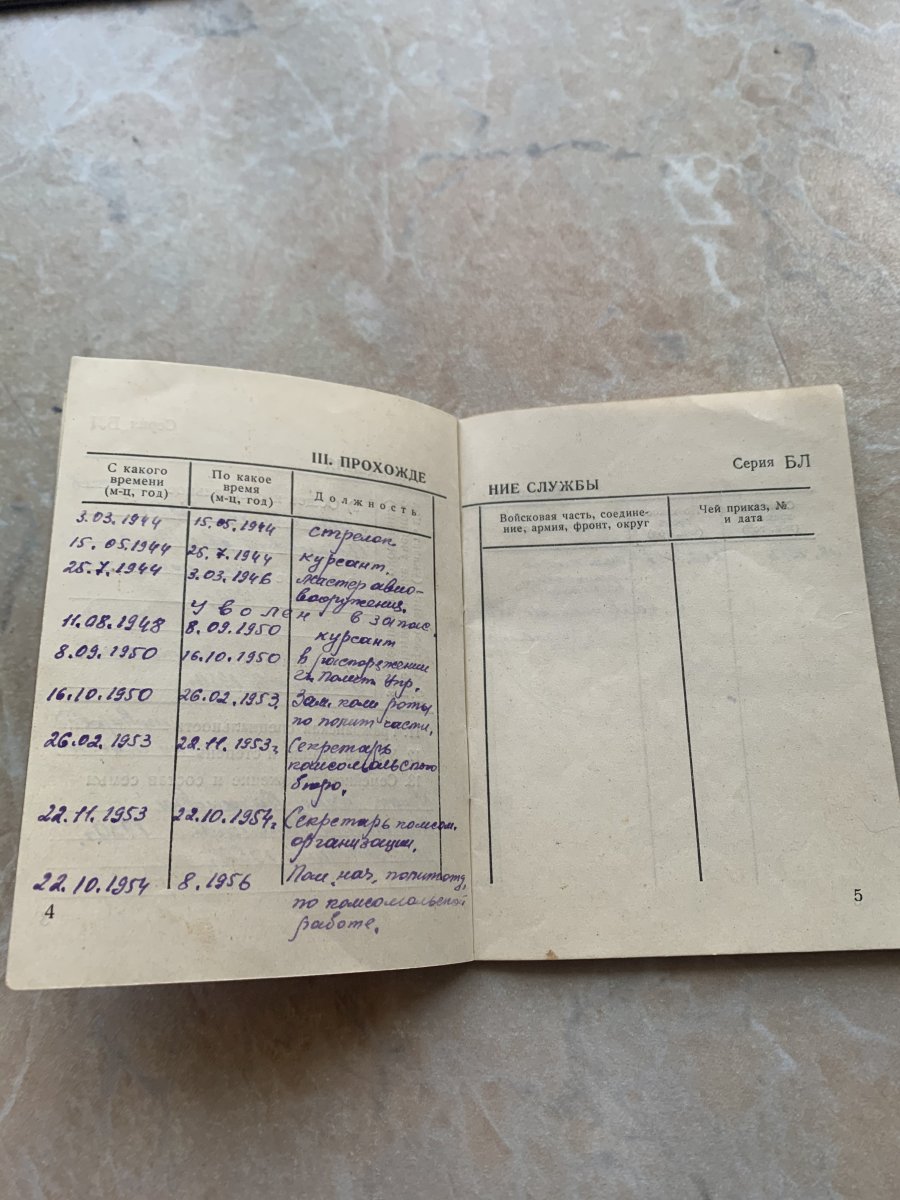 III. ПРОХОЖДЕ
С какого времени (м-ц, год)
По какое время (м-ц, год)
Должность
3.03.1944 15.05.1944 стрелок
15.05.1944 25.7.1944 курсант.
25.7.1944 3.03.1946 мастер авиа-
вооружения.
Уволен в запас.
11.08.1948 8.09.1950 курсант
8.09.1950 16.10.1950 в распоряжении
гл. Полит Упр.
16.10.1950 26.02.1953. Зам. ком роты
по полит части.
26.02.1953 22.11.1953г. Секретарь
комсомольского
бюро.
22.11.1953 22.10.1954г. Секретарь комсом.
организации.
22.10.1954 8.1956 Пом. нач. политотд.
по комсомольской
работе.
4
Серия БЛ
НИЕ СЛУЖБЫ
Войсковая часть, соедине-
ние, армия, фронт, округ
Чей приказ, №
и дата
5